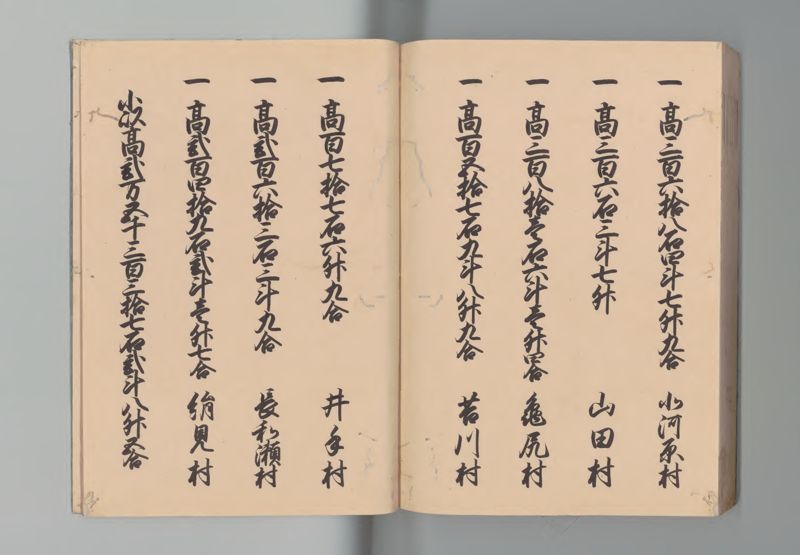 一 高三百六拾八石四斗七升九合 小河原村
一 高三百六石三斗七升 山田村
一 高三百八拾壱石六斗壱升四合 亀尻村
一 高百五拾七石九斗八升九合 苔川村
一 高百七拾七石六升九合 井手村
一 高弐百六拾三石三斗九合 長和瀬村
一 高弐百四拾九石弐斗壱升七合 絹見村
小以高弐万五千三百三拾七石弐斗八升五合